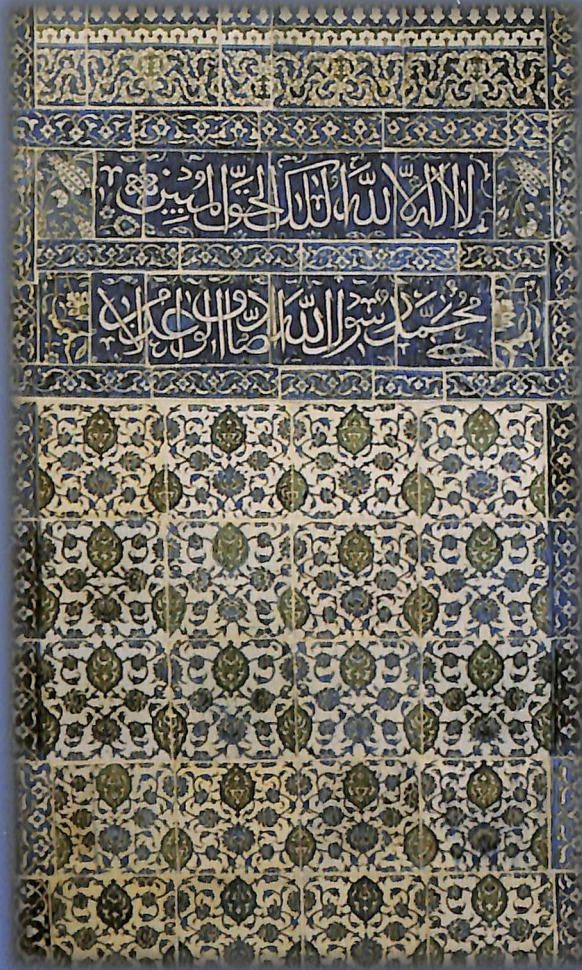 لا اله الا الله الملك الحق المبين
محمد رسول الله صادق الوعد